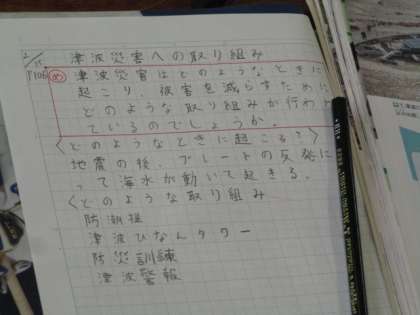 津波災害への取り組み
P106 め 津波災害はどのようなときに
起こり、被害を減らすために
どのような取り組みが行われ
ているのでしょうか。
〈どのようなときに起こる？〉
地震の後、プレートの反発に
って海水が動いて起きる。
〈どのような取り組み
防潮堤
津波ひなんタワー
防災訓練
津波警報